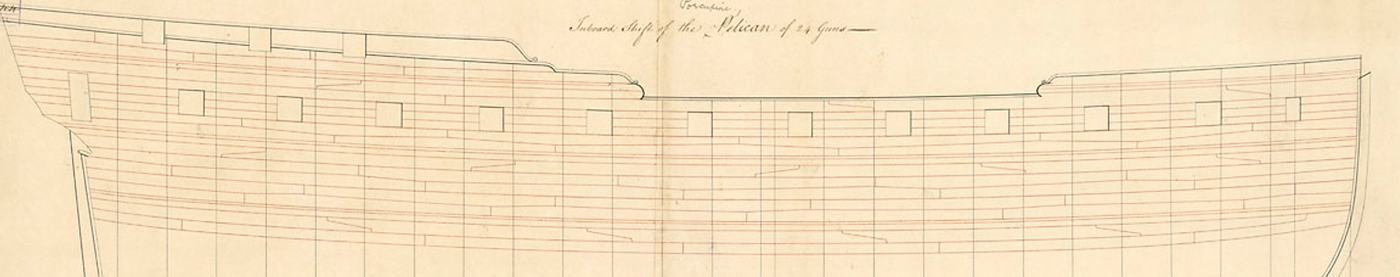 Porcupine,
Inboard Shift of the Pelican of 24 Guns —